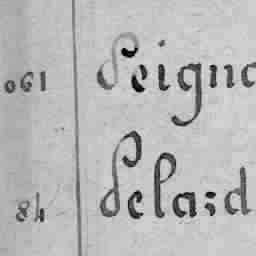 061 Seigno
84 Selaid